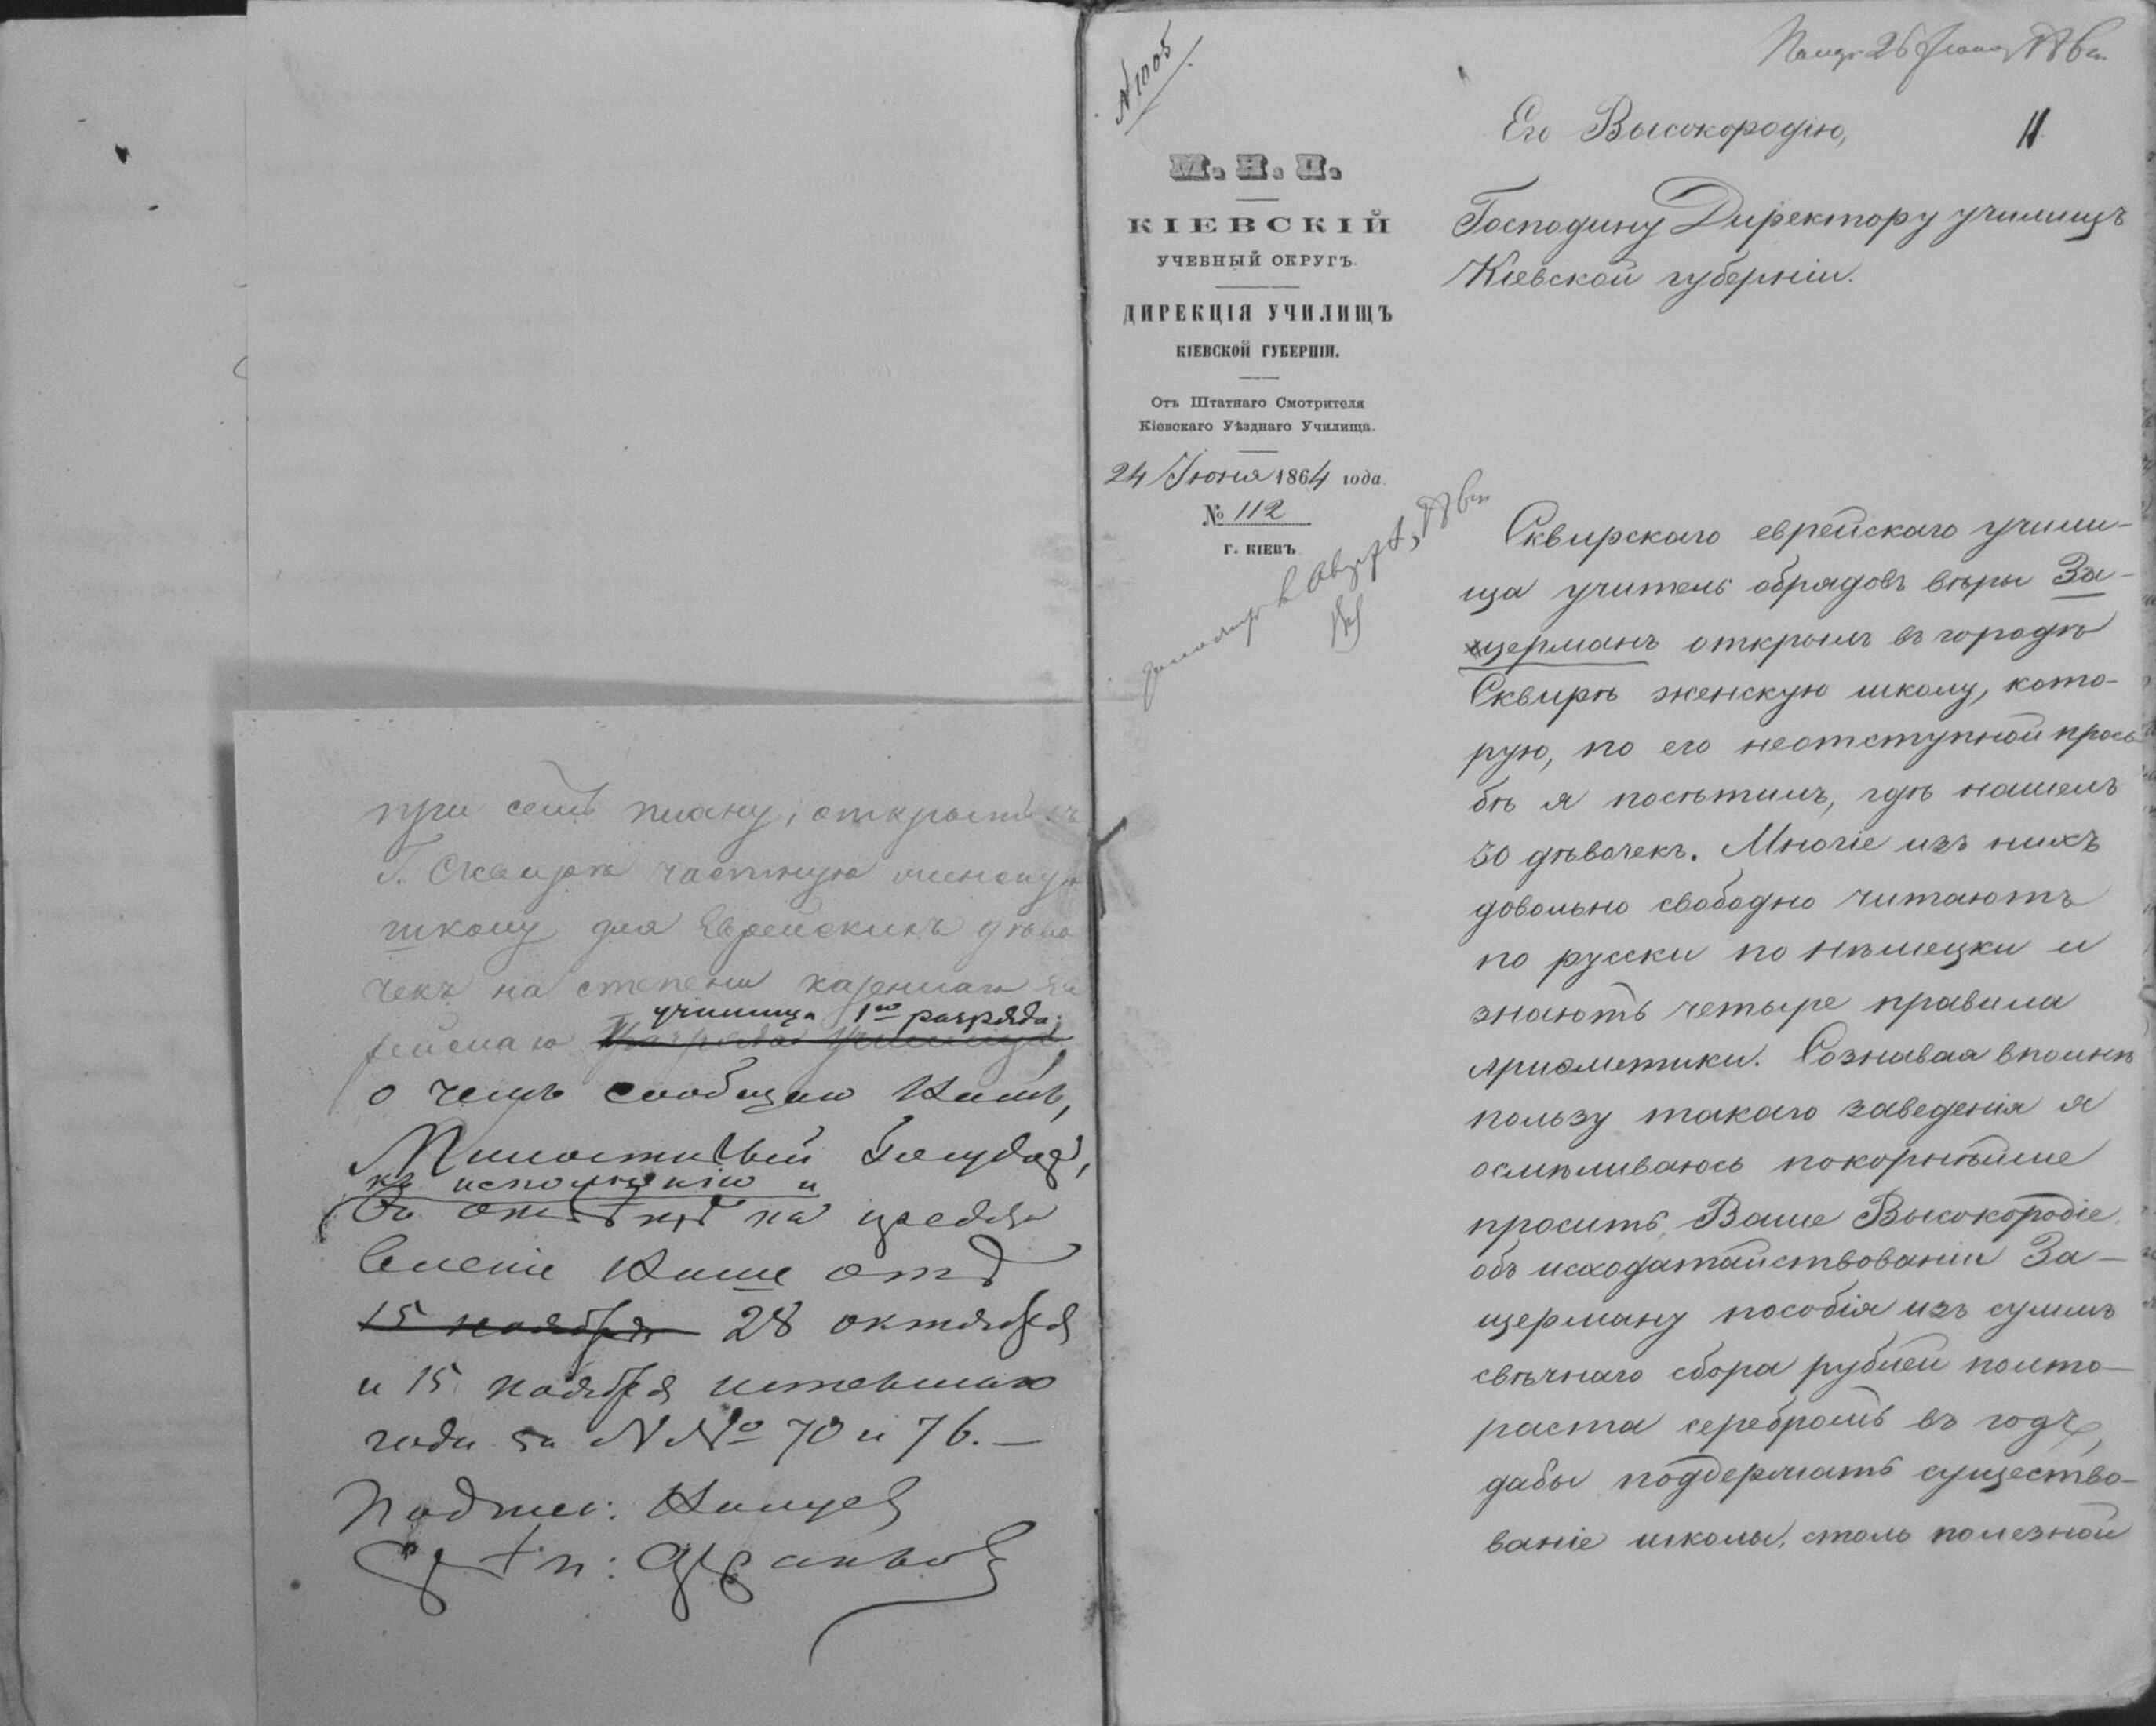 при семъ плану, открыть въ
Г. Сквирѣ частную женскую
школу для Еврейскихъ дѣво
чекъ на степени казеннаго Ев
рейскаго
училища 1го разряда.
о чемъ сообщаю Вамъ,
Милостивый Государь,
къ исполненію и
въ отвѣтъ на предста
вленіе Ваше отъ
15 ноября 28 октября
и 15 ноября истекшаго
года за №№ 70 и 76.—
Подпис:
№ 1005
26 Іюня
Его Высокородію,
11
Господину Директору училищъ
Кіевской губерніи.
М. Н. П.
КІЕВСКІЙ
УЧЕБНЫЙ ОКРУГЪ.
ДИРЕКЦІЯ УЧИЛИЩЪ
КІЕВСКОЙ ГУБЕРНІИ.
Отъ Штатнаго Смотрителя
Кіевскаго Уѣзднаго Училища.
24 Іюня 1864 года.
№ 112
Г. КІЕВЪ
Сквирскаго еврейскаго учили-
ща учитель обрядовъ вѣры За-
щерманъ открылъ въ городѣ
Сквирѣ женскую школу, кото-
рую, по его неотступной прось-
бѣ я посѣтилъ, гдѣ нашелъ
50 дѣвочекъ. Многіе изъ нихъ
довольно свободно читаютъ
по русски по нѣмецки и
знаютъ четыре правила
Ариѳметики. Сознавая вполнѣ
пользу такаго заведенія я
осмѣливаюсь покорнѣйше
просить Ваше Высокородіе
объ исходатайствованіи За-
щерману пособія изъ суммъ
свѣчнаго сбора рублей полто-
раста серебромъ въ годъ,
дабы поддержать существо-
ваніе школы, столь полезной